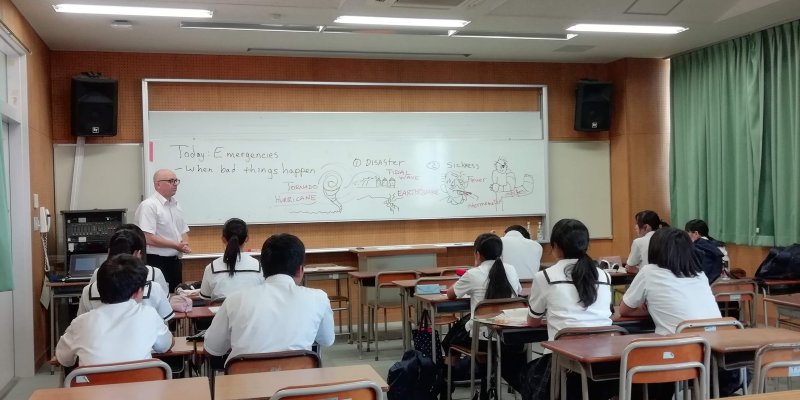 Today - Emergencies
- When bad things happen
① DISASTER
TORNADO
HURRICANE
TIDAL
WAVE
EARTHQUAKE
② SICKNESS
Fever